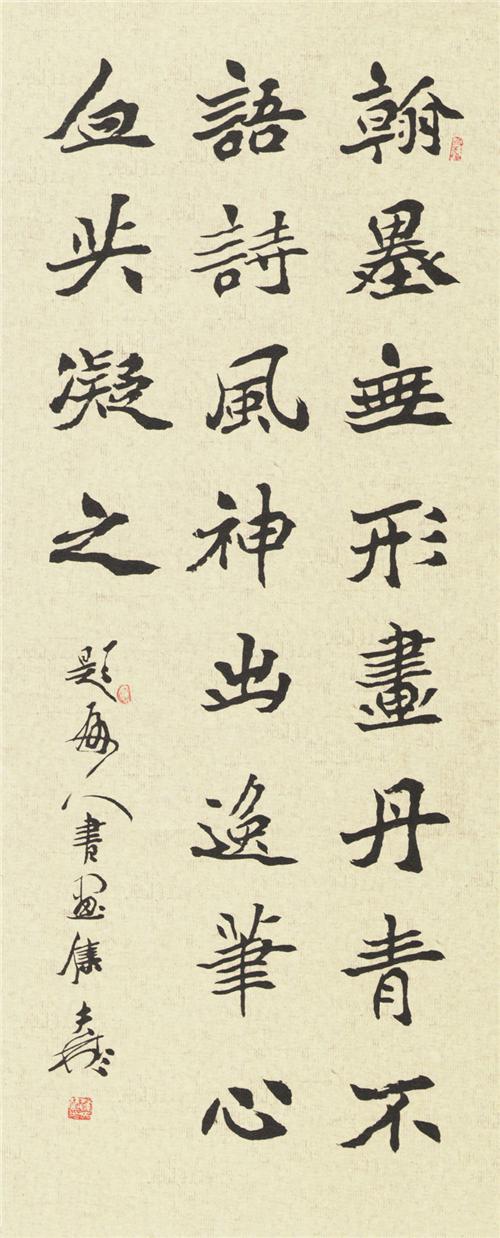 翰墨無形畫丹青不
語詩風神出逸筆心
血共凝之
題人書画集